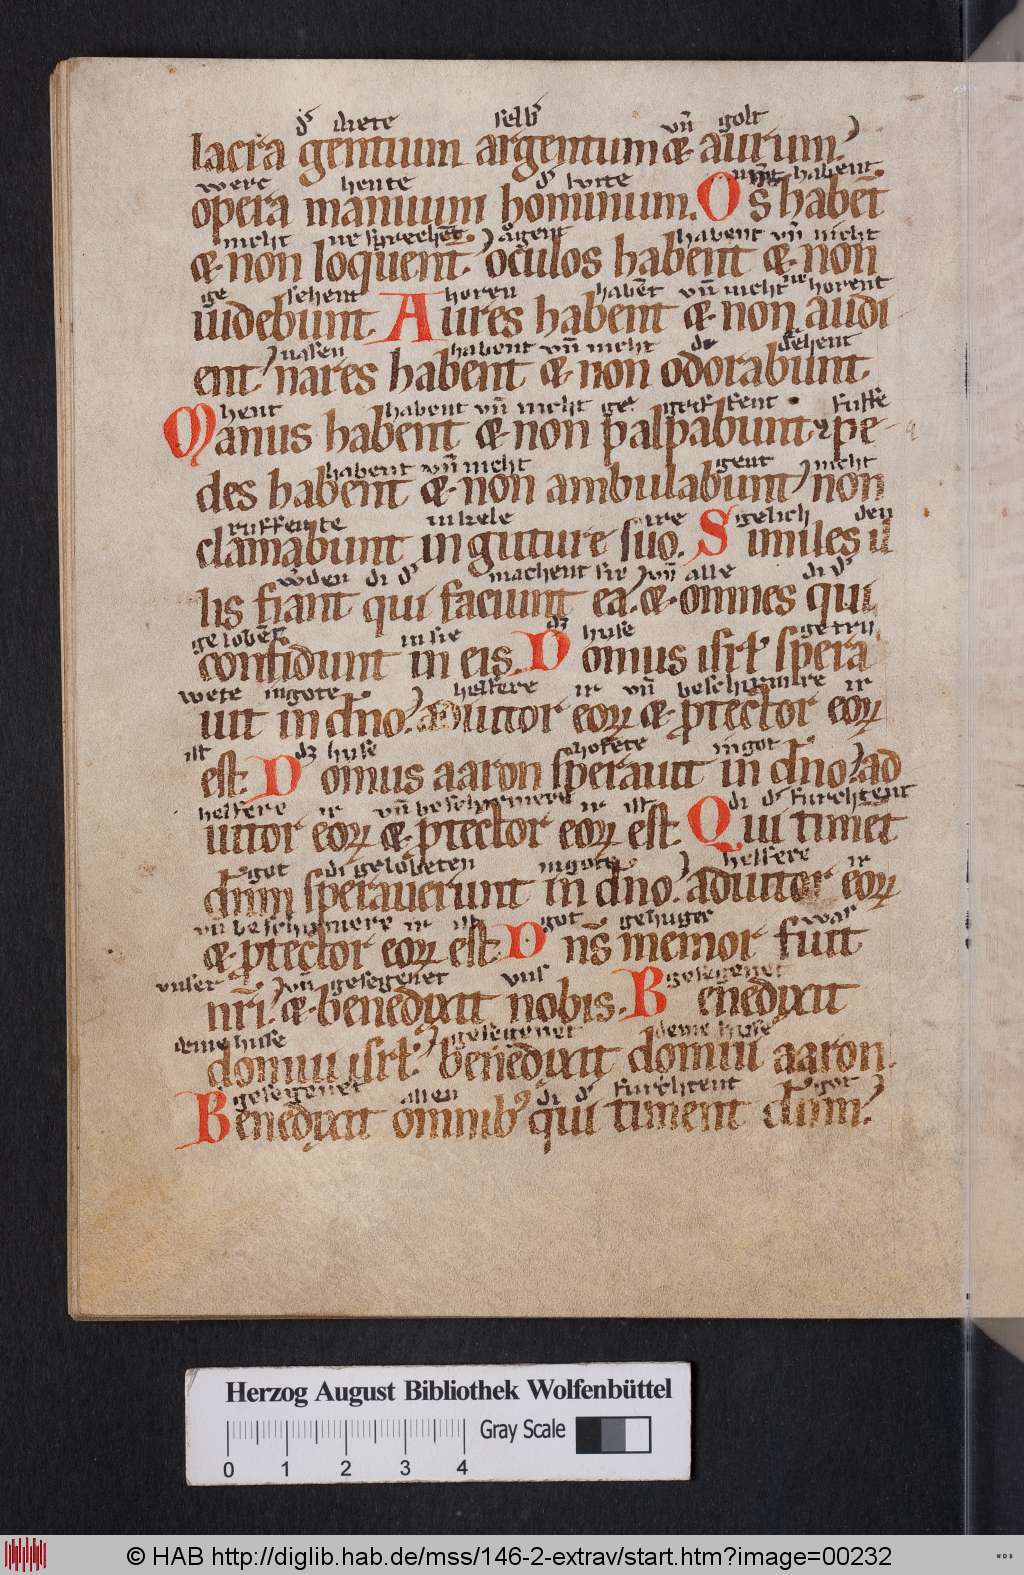 dᷘ diete selbᷘ vn̄ golt
lacra gentium argentum & aurum.
werc hente dᷘ lvite habent
opera manuum hominum. Os habēt
nicht ne sprechēt ågent habent vn̄ nicht
& non loquent. oculos habent & non
ge sehent horen habēt vn̄ nicht horent
uidebunt. Aures habent & non audi
nasen habent vn̄ nicht
ent nares habent & non odorabunt.
hent habent vn̄ nicht ge griffent fuſſe
Manus habent & non palpabunt pe-
habent vn̄ nicht gent nicht
des habent & non ambulabunt non
ruffente in kele ire gelich den
clamabunt in guture suo. Similes il
wᷘden di dᷘ machent sie vn̄ alle di dᷘ
lis fiant qui faciunt ea. & omnes qui
gelobēt in sie dz huse getru
confidunt in eis. Domus isrł spera
wete in gote helfere ir vn̄ beschirmere ir
uit in dn̄o. adiutor eoꝝ & ꝓtector eoꝝ
ist dz huse hofete in got
est. Domus aaron sperauit in dn̄o. ad
helfere ir vn̄ beschirmere ir ist di dᷘ furchtent
iutor eoꝝ & ꝓtector eoꝝ est. Qui timet
got di gelobeten in gote helfere ir
dn̄m sperauerunt in dn̄o. adiutor eoꝝ
vn̄ beschirmere ir ist got gehuger war
& ꝓtector eoꝝ est. Dn̄s memor fuit
vnser vn̄ gesegenet vns gesegenet
nr̄i. & benedixit nobis. Benedixit
deme huse gesegenet deme huse
domui isrł. benedixit domui aaron.
gesegenet allen di dᷘ furchtent got
Benedixit omnibꝰ qui timent dn̄m.
Herzog August Bibliothek Wolfenbüttel
Gray Scale
0 1 2 3 4
© HAB http://diglib.hab.de/mss/146-2-extrav/start.htm?image=00232